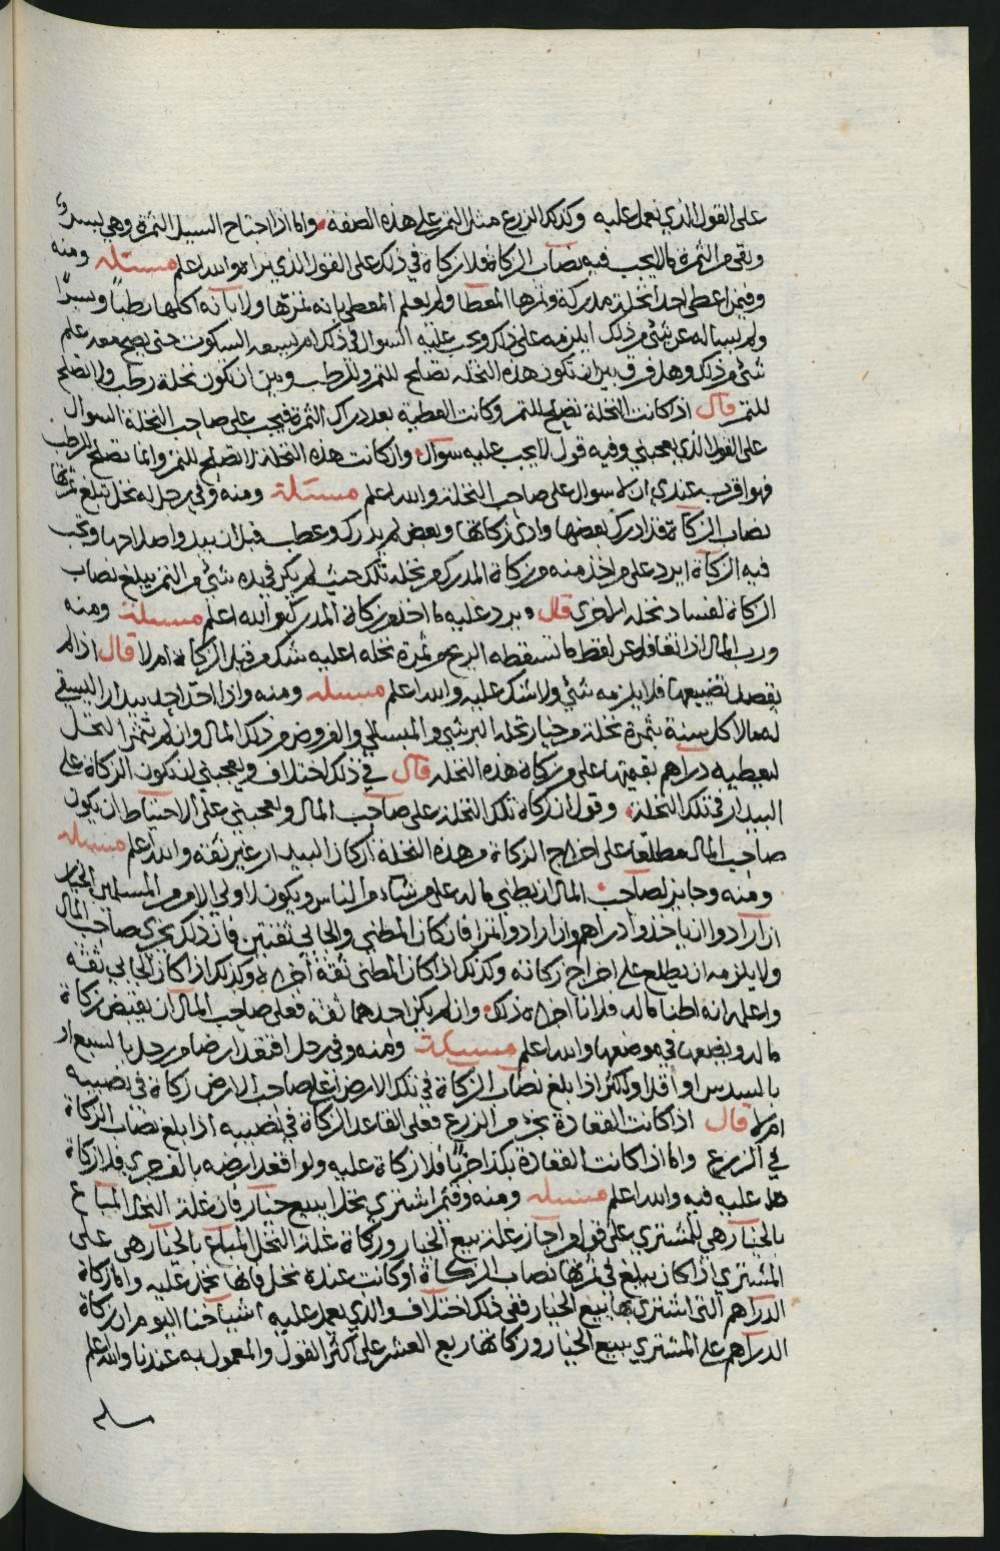 على القول الذي نعمل عليه وكذلك الزرع مثل التمر على هذه الصفة واما اذا اجتاح السيل الثمرة وهي بسر
وبقي من الثمرة ما لا يجب فيه نصاب الزكاة فلا زكاة في ذلك على القول الذي نراه والله اعلم مسئلة ومنه
وفيمن اعطى احدا نخلة مدركة وثمرها المعطا ولم يعلم المعطي بانه تمرها ولا بانه اكلها رطبا وبسرا
ولم يساله عن شئ من ذلك ايلزمه على ذلك ويجب عليه السوال في ذلك ام يسعه السكوت حتى يصح معه علم
شئ من ذلك وهل فرق بين ان تكون هذه النخلة تصلح للتمر وللرطب وبين ان تكون نخلة رطب ولا تصلح
للتمر قال اذا كانت النخلة تصلح للتمر وكانت العطية بعد دراك الثمرة فيجب على صاحب النخلة السوال
على القول الذي يعجبني وفيه قول لا يجب عليه سوال وان كانت هذه النخلة لا تصلح للتمر وانما تصلح للرطب
فهو اقرب عندي ان لا سوال على صاحب النخلة والله اعلم مسئلة ومنه وفي رجل له نخل تبلغ ثمرتها
نصاب الزكاة فادرك بعضها وادى زكاتها وبعض لم يدرك وعطب قبل ان يبدو اصلاحها وتجب
فيه الزكاة ايرد على من اخذ منه وزكاة المدرك من نخله تلك حيث لم يكن في يده شئ من التمر يبلغ نصاب
الزكاة لفساد نخله الاخرى قال ويرد عليه ما اخذ من زكاة المدرك والله اعلم مسئلة ومنه
ورب المال اذا تغافل عن لقط ما تسقطه الريح من ثمرة نخله اعليه شك من قبل الزكاة ام لا قال اذا لم
يقصد تضييعها فلا يلزمه شئ ولا شك عليه والله اعلم مسئلة ومنه واذا اخذ احد بيدارا ليسقي
له مالا كل سنة بثمرة نخلة من خيار نخله البرشي والمبسلي والفروض من ذلك المال وان لم تثمر النخل
ليعطيه دراهم بقيمتها على من زكاة هذه النخلة قال في ذلك اختلاف ويعجبني ان تكون الزكاة على
البيدار في تلك النخلة وقول ان زكاة تلك النخلة على صاحب المال ويعجبني على الاحتياط ان يكون
صاحب المال مطلعا على اخراج الزكاة من هذه النخلة ان كان البيدار غير ثقة والله اعلم مسئلة
ومنه وجايز لصاحب المال ان يطني ماله على من شاء من الناس ويكون لاولي الامر من المسلمين الخيار
ان ارادوا ان ياخذوا دراهم وان ارادوا التمر فان كان المطني والجابي ثقتين فان ذلك يجزي صاحب المال
ولا يلزمه ان يطلع على اخراج زكاته وكذلك اذا كان المطني ثقة اجزاه وكذلك اذا كان الجابي ثقة
واعلمه انه اطنا ماله فلانا اجزاه ذلك وان لم يكن احدهما ثقة فعلى صاحب المال ان يقبض زكاة
ماله ويضعها في موضعها والله اعلم مسئلة ومنه وفي رجل اقتعد ارضا من رجل بالسبع او
بالسدس او اقل او اكثر اذا بلغ نصاب الزكاة في تلك الارض اعلى صاحب الارض زكاة في نصيبه
ام لا قال اذا كانت القعادة بجزء من الزرع فعلى القاعد الزكاة في نصيبه اذا بلغ نصاب الزكاة
في الزرع واما اذا كانت القعادة بكذا جريا فلا زكاة عليه ولو اقعد ارضه بالف جري فلا زكاة
عليه فيه والله اعلم مسئلة ومنه وفيمن اشترى نخلا ببيع خيار فان غلة النخل المباع
بالخيار هي للمشتري على قول من اجاز غلة بيع الخيار وزكاة غلة النخل المباع بالخيار هي على
المشتري اذا كان يبلغ في ثمرتها نصاب الزكاة او كانت عنده نخل فانها تحمل عليه واما زكاة
الدراهم التي اشترى بها بيع الخيار ففي ذلك اختلاف والذي يعمل عليه اشياخنا اليوم ان زكاة
الدراهم على المشتري ببيع الخيار وزكاتها ربع العشر على اكثر القول والمعمول به عندنا والله اعلم